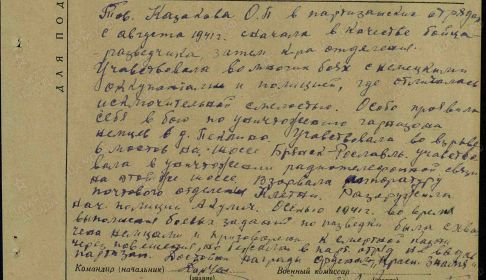 ДЛЯ ПОД
Тов. Казакова О.П. в партизанском отряде
с августа 1941г. сначала в качестве бойца-
разведчика, затем к-ра отделения.
Участвовала во многих боях с немецкими
оккупантами и полицией, где отличалась
исключительной смелостью. Особо проявила
себя в бою по уничтожению гарнизона
немцев в д. Пеклино. Участвовала во взрыве
6 мостов на шоссе Брянск-Рославль. Участво-
вала в уничтожении радиотелефонной связи
на этой же шоссе. Взорвала аппаратуру
почтового отделения Клетни. Разоружила
нач. полиции Акулич. Осенью 1941г. во время
выполнения боевых заданий по разведке была схва-
чена немцами и приговорена к смертной казни
через повешение, но бежала в партотряд
партизан. Достойна награды орденом Красн. Знамя
Командир (начальник)
Военный комиссар